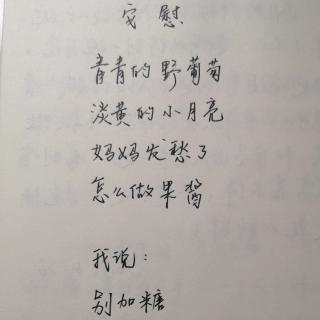 安慰
青青的野葡萄
淡黄的小月亮
妈妈发愁了
怎么做果酱
我说：
别加糖